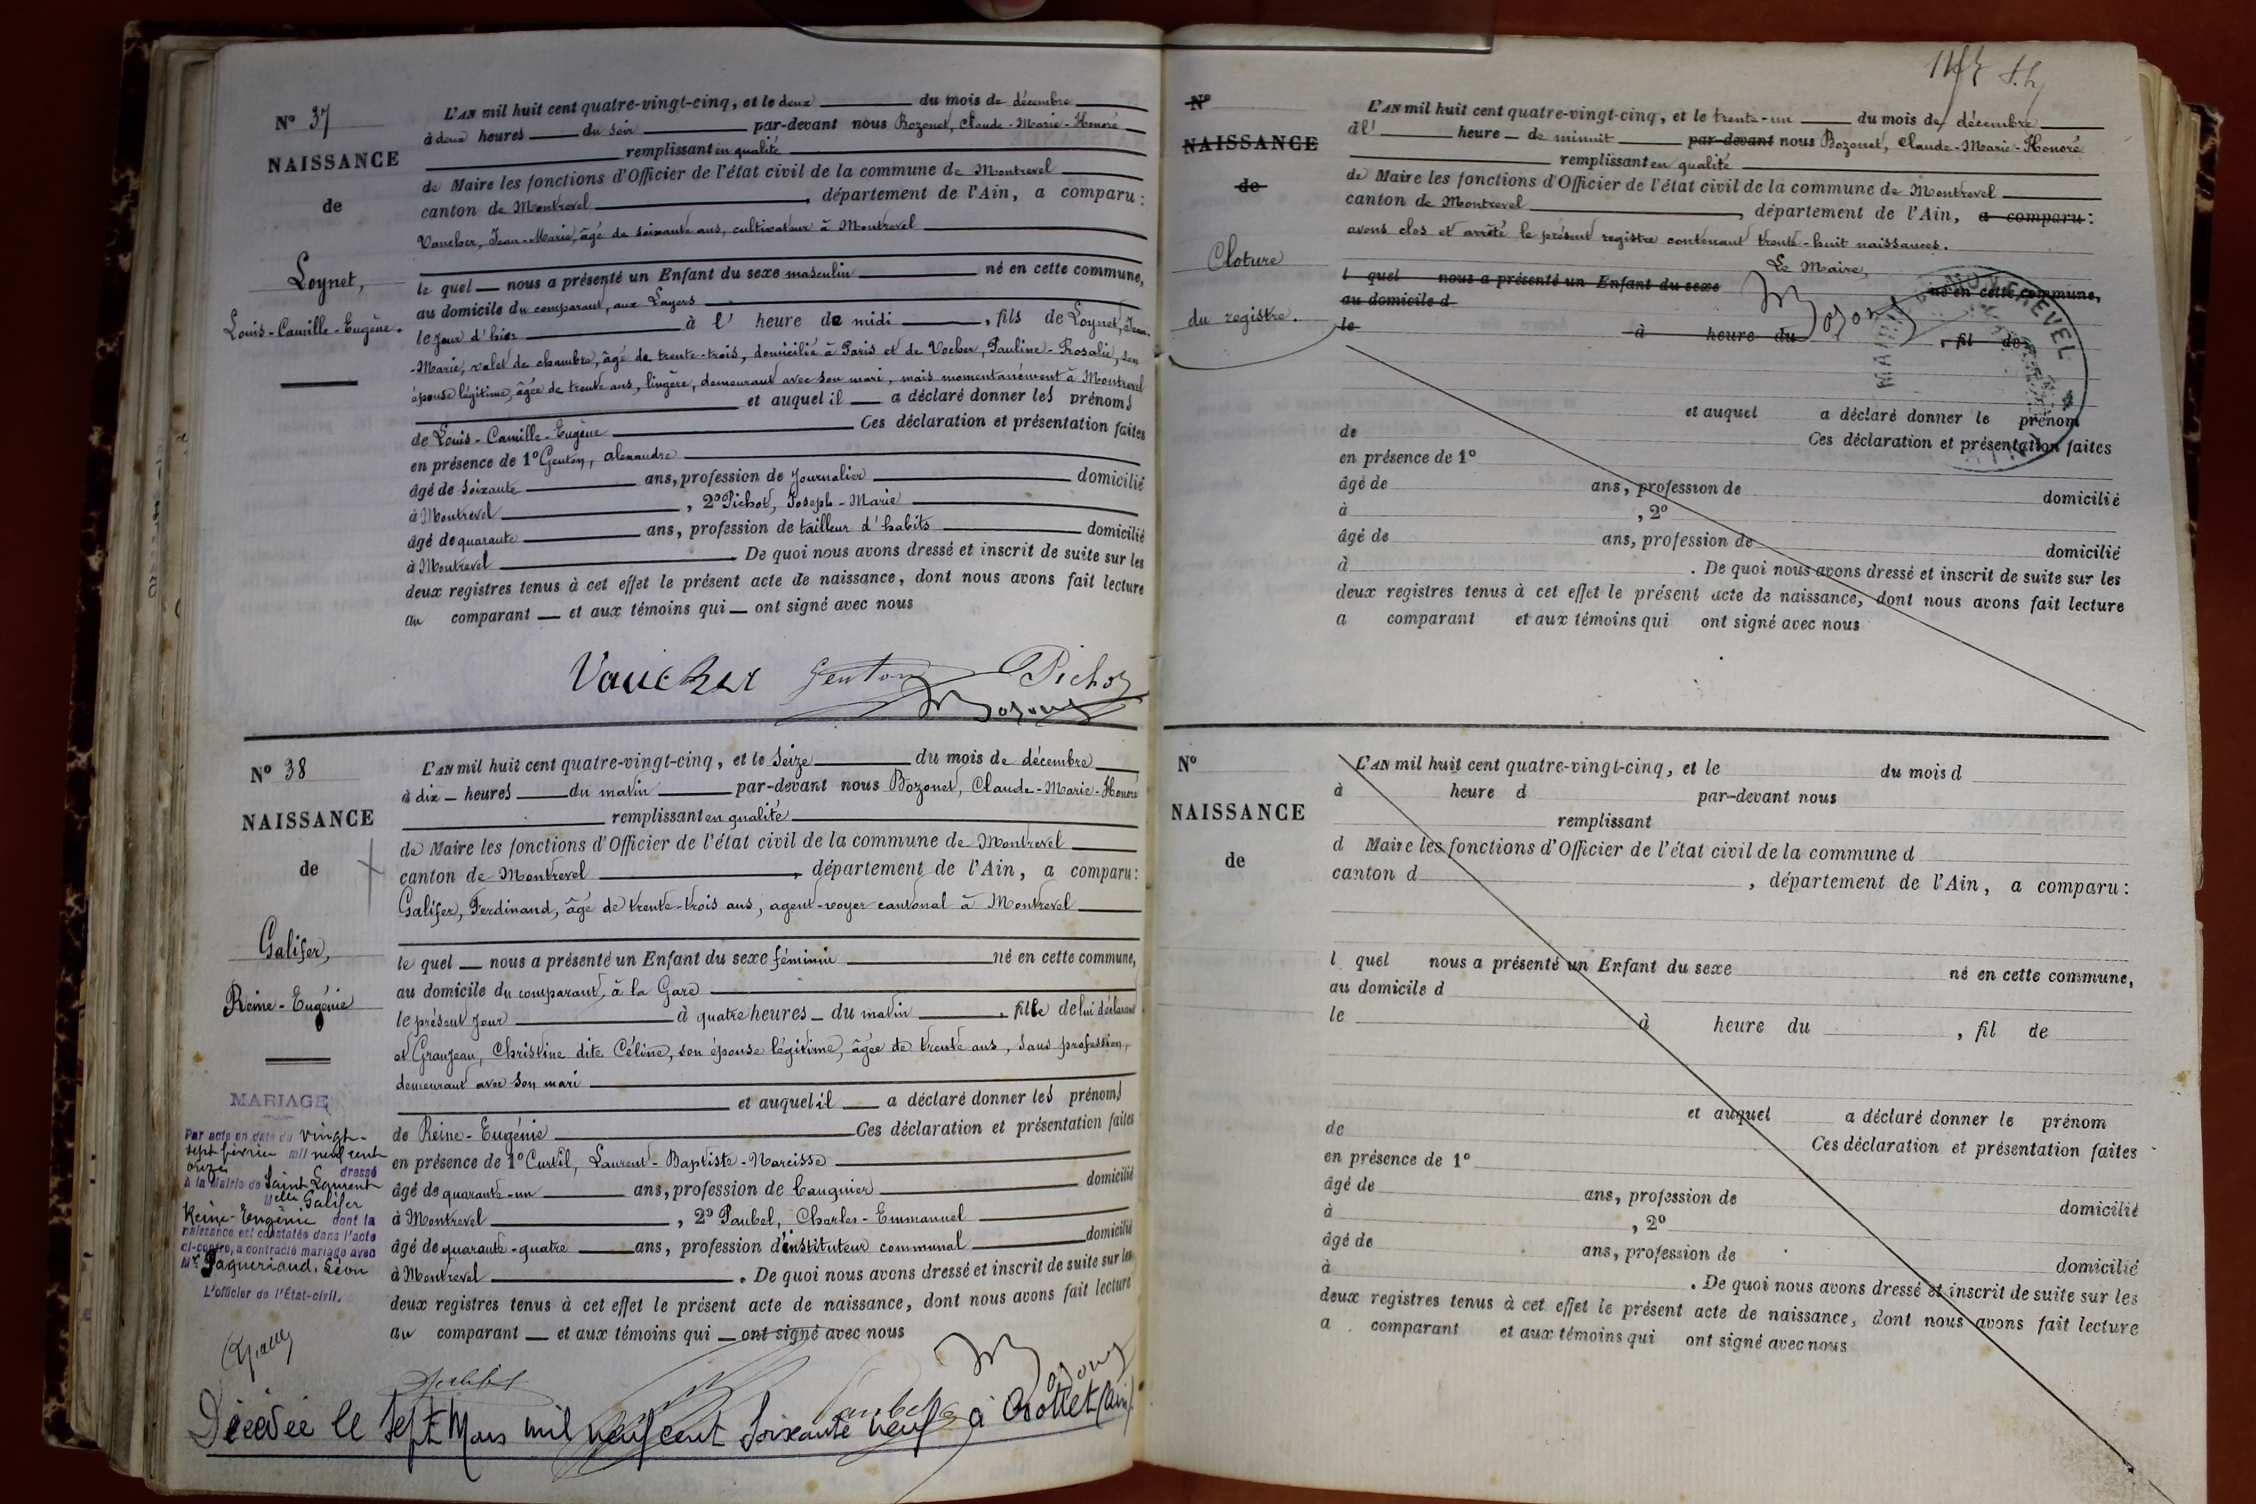 Nº 37
NAISSANCE
de
Loynet,
Louis-Camille-Eugène.
L'AN mil huit cent quatre-vingt-cinq, et le deux du mois de décembre
à deux heures du soir par-devant nous Bozonet, Claude-Marie-Honoré
remplissant en qualité
de Maire les fonctions d'Officier de l'état civil de la commune de Montrevel
canton de Montrevel, département de l'Ain, a comparu:
Vaucher, Jean-Marie, âgé de soixante ans, cultivateur à Montrevel
le quel nous a présenté un Enfant du sexe masculin né en cette commune,
au domicile du comparant, aux Layers
le jour d'hier à l' heure de midi, fils de Loynet, Jean-
-Marie, valet de chambre, âgé de trente-trois, domicilié à Paris et de Vocher, Pauline-Rosalie, son
épouse légitime, âgée de trente ans, lingère, demeurant avec son mari, mais momentanément à Montrevel
et auquel il a déclaré donner les prénoms
de Louis-Camille-Eugène Ces déclaration et présentation faites
en présence de 1º Genton, Alexandre
âgé de soixante ans, profession de journalier domicilié
à Montrevel, 2º Pichot, Joseph-Marie
âgé de quarante ans, profession de tailleur d'habits domicilié
à Montrevel. De quoi nous avons dressé et inscrit de suite sur les
deux registres tenus à cet effet le présent acte de naissance, dont nous avons fait lecture
au comparant et aux témoins qui ont signé avec nous
Vaucher Genton Pichot
Bozonet
Nº 38
NAISSANCE
de
Galifer,
Reine-Eugénie
L'AN mil huit cent quatre-vingt-cinq, et le seize du mois de décembre
à dix heures du matin par-devant nous Bozonet, Claude-Marie-Honoré
remplissant en qualité
de Maire les fonctions d'Officier de l'état civil de la commune de Montrevel
canton de Montrevel, département de l'Ain, a comparu:
Galifer, Ferdinand, âgé de trente-trois ans, agent-voyer cantonal à Montrevel
le quel nous a présenté un Enfant du sexe féminin né en cette commune,
au domicile du comparant, à la Gare
le présent jour à quatre heures du matin, fille de lui déclarant
et Granjean, Christine dite Céline, son épouse légitime, âgée de trente ans, sans profession,
demeurant avec son mari
et auquel il a déclaré donner les prénoms
de Reine-Eugénie Ces déclaration et présentation faites
en présence de 1º Curtil, Laurent-Baptiste-Narcisse
âgé de quarante-un ans, profession de banquier domicilié
à Montrevel, 2º Paubel, Charles-Emmanuel
âgé de quarante-quatre ans, profession d'instituteur communal domicilié
à Montrevel. De quoi nous avons dressé et inscrit de suite sur les
deux registres tenus à cet effet le présent acte de naissance, dont nous avons fait lecture
au comparant et aux témoins qui ont signé avec nous
MARIAGE
Par acte en date du vingt-
sept février mil neuf cent
onze dressé
à la Mairie de Saint Laurent
Melle Galifer
Reine-Eugénie dont la
naissance est constatée dans l'acte
ci-contre, a contracté mariage avec
Mr Paqueriaud, Léon
L'officier de l'État-civil,
Bozonet
Paubel
Décédée le sept Mars mil neuf cent soixante neuf à Crottet (Ain)
Nº
NAISSANCE
de
Cloture
du registre.
L'AN mil huit cent quatre-vingt-cinq, et le trente-un du mois de décembre
à l' heure de minuit par-devant nous Bozonet, Claude-Marie-Honoré
remplissant en qualité
de Maire les fonctions d'Officier de l'état civil de la commune de Montrevel
canton de Montrevel, département de l'Ain, a comparu:
avons clos et arrêté le présent registre contenant trente-huit naissances.
Le Maire,
l quel nous a présenté un Enfant du sexe né en cette commune,
au domicile d
Bozonet
MAIRIE MONTREVEL
le à heure du, fil de
et auquel a déclaré donner le prénom
de Ces déclaration et présentation faites
en présence de 1º
âgé de ans, profession de domicilié
à, 2º
âgé de ans, profession de domicilié
à. De quoi nous avons dressé et inscrit de suite sur les
deux registres tenus à cet effet le présent acte de naissance, dont nous avons fait lecture
a comparant et aux témoins qui ont signé avec nous
Nº
NAISSANCE
de
L'AN mil huit cent quatre-vingt-cinq, et le du mois d
à heure d par-devant nous
remplissant
d Maire les fonctions d'Officier de l'état civil de la commune d
canton d, département de l'Ain, a comparu:
l quel nous a présenté un Enfant du sexe né en cette commune,
au domicile d
le à heure du, fil de
et auquel a déclaré donner le prénom
de Ces déclaration et présentation faites
en présence de 1º
âgé de ans, profession de domicilié
à, 2º
âgé de ans, profession de domicilié
à. De quoi nous avons dressé et inscrit de suite sur les
deux registres tenus à cet effet le présent acte de naissance, dont nous avons fait lecture
a comparant et aux témoins qui ont signé avec nous